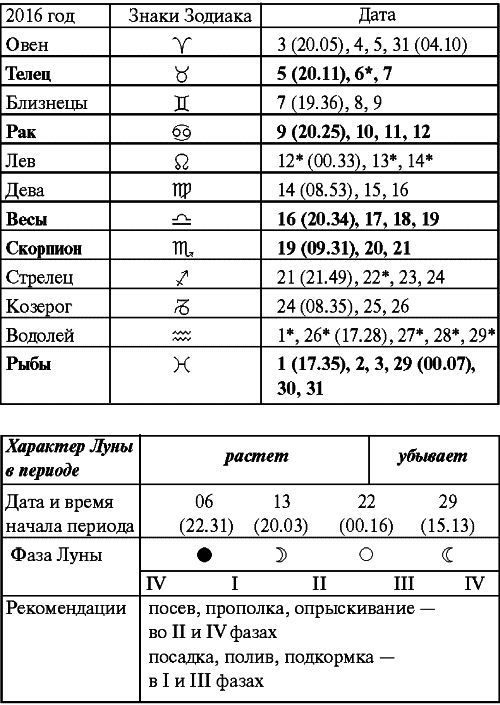 2016 год Знаки Зодиака Дата
Овен ♈ 3 (20.05), 4, 5, 31 (04.10)
Телец ♉ 5 (20.11), 6*, 7
Близнецы ♊ 7 (19.36), 8, 9
Рак ♋ 9 (20.25), 10, 11, 12
Лев ♌ 12* (00.33), 13*, 14*
Дева ♍ 14 (08.53), 15, 16
Весы ♎ 16 (20.34), 17, 18, 19
Скорпион ♏ 19 (09.31), 20, 21
Стрелец ♐ 21 (21.49), 22*, 23, 24
Козерог ♑ 24 (08.35), 25, 26
Водолей ♒ 1*, 26* (17.28), 27*, 28*, 29*
Рыбы ♓ 1 (17.35), 2, 3, 29 (00.07),
30, 31
Характер Луны
в периоде растет убывает
Дата и время 06 13 22 29
начала периода (22.31) (20.03) (00.16) (15.13)
Фаза Луны ● ☽ ○ ☾
IV I II III IV
Рекомендации посев, прополка, опрыскивание —
во II и IV фазах
посадка, полив, подкормка —
в I и III фазах